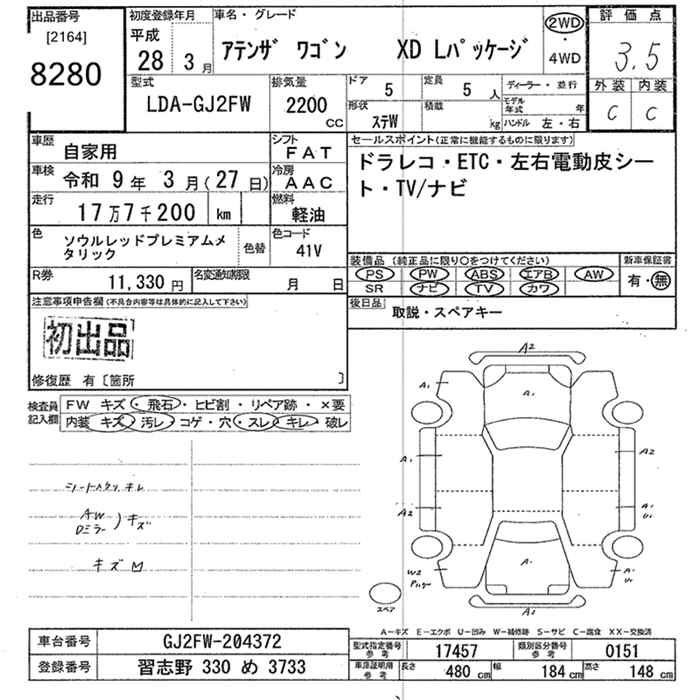 出品番号
[2164]
8280
初度登録年月
平成
28 3月
車名・グレード
アテンザ ワゴン XD Lパッケージ
2WD
・
4WD
評価点
3.5
外装 内装
C C
型式
LDA-GJ2FW
排気量
2200
CC
ドア
5
定員
5 人
ディーラー・並行
モデル年式 年
形状
ステW
積載
kg
ハンドル 左・右
車歴
自家用
シフト
FAT
車検
令和 9年 3月(27日)
冷房
AAC
走行
17万7千200 km
燃料
軽油
色
ソウルレッドプレミアムメ
タリック
色替
色コード
41V
R券
11,330 円
名変通知期限
月 日
セールスポイント(正常に機能するものに限ります)
ドラレコ・ETC・左右電動皮シー
ト・TV/ナビ
装備品(純正品に限り○をつけてください)
PS PW ABS エアB AW
SR ナビ TV カワ
新車保証書
有・無
後日品
取説・スペアキー
注意事項申告欄(不具合内容等は具体的に記入して下さい)
初出品
修復歴 有〔箇所 〕
検査員
記入欄
FW キズ・飛石・ヒビ割・リペア跡・×要
内装 キズ・汚レ・コゲ・穴・スレ・キレ・破レ
AW
Dミラー)キズ
キズ M
A2
A1
A1
A1
A2
A2
A1
U1
W2
A1
A1
U1
A2
スペア
A-キズ E-エクボ U-凹み W-補修跡 S-サビ C-腐食 XX-交換済
車台番号
GJ2FW-204372
登録番号
習志野 330 め 3733
型式指定番号
参考
17457
類別区分番号
参考
0151
車庫証明用
参考
長さ 480 cm
幅 184 cm
高さ 148 cm